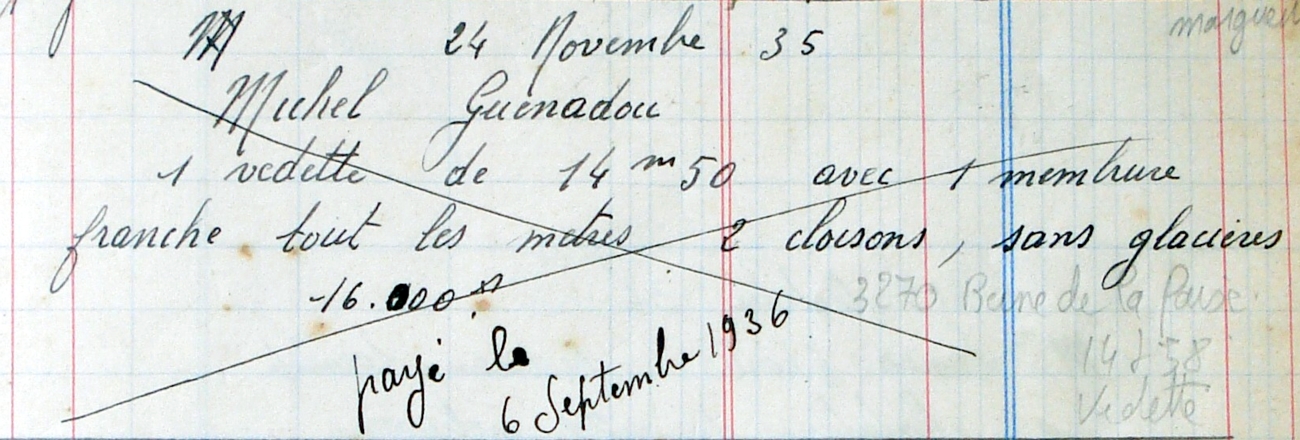 M 24 Novembre 35
Michel Guénadou
1 vedette de 14 m 50 avec 1 membrure
franche tout les mètres 2 cloisons, sans glacières
16.000 F
payé le
6 Septembre 1936
3270 Reine de la Paix.
14 t 58
Vedette